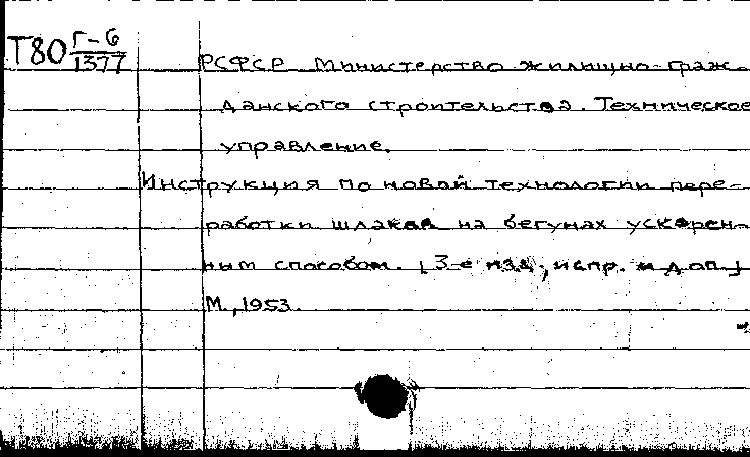 Т80 Г-6/1377
РСФСР Министерство жилищно-граж-
данского строительства. Техническое
управление.
Инструкция по новой технологии пере-
работки шлаков на бегунах ускорен-
ным способом. [3-е изд., испр. и доп.]
М., 1953.